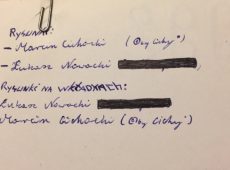 RYSUNKI:
- Marcin Cichocki ("Oby Cichy")
- Łukasz Nowacki
RYSUNKI NA WKŁADKACH:
Łukasz Nowacki
Marcin Cichocki ("Oby Cichy")